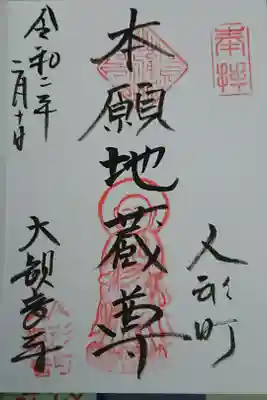 奉拝
人形町
本願地蔵尊
令和二年
二月十日
大観音寺